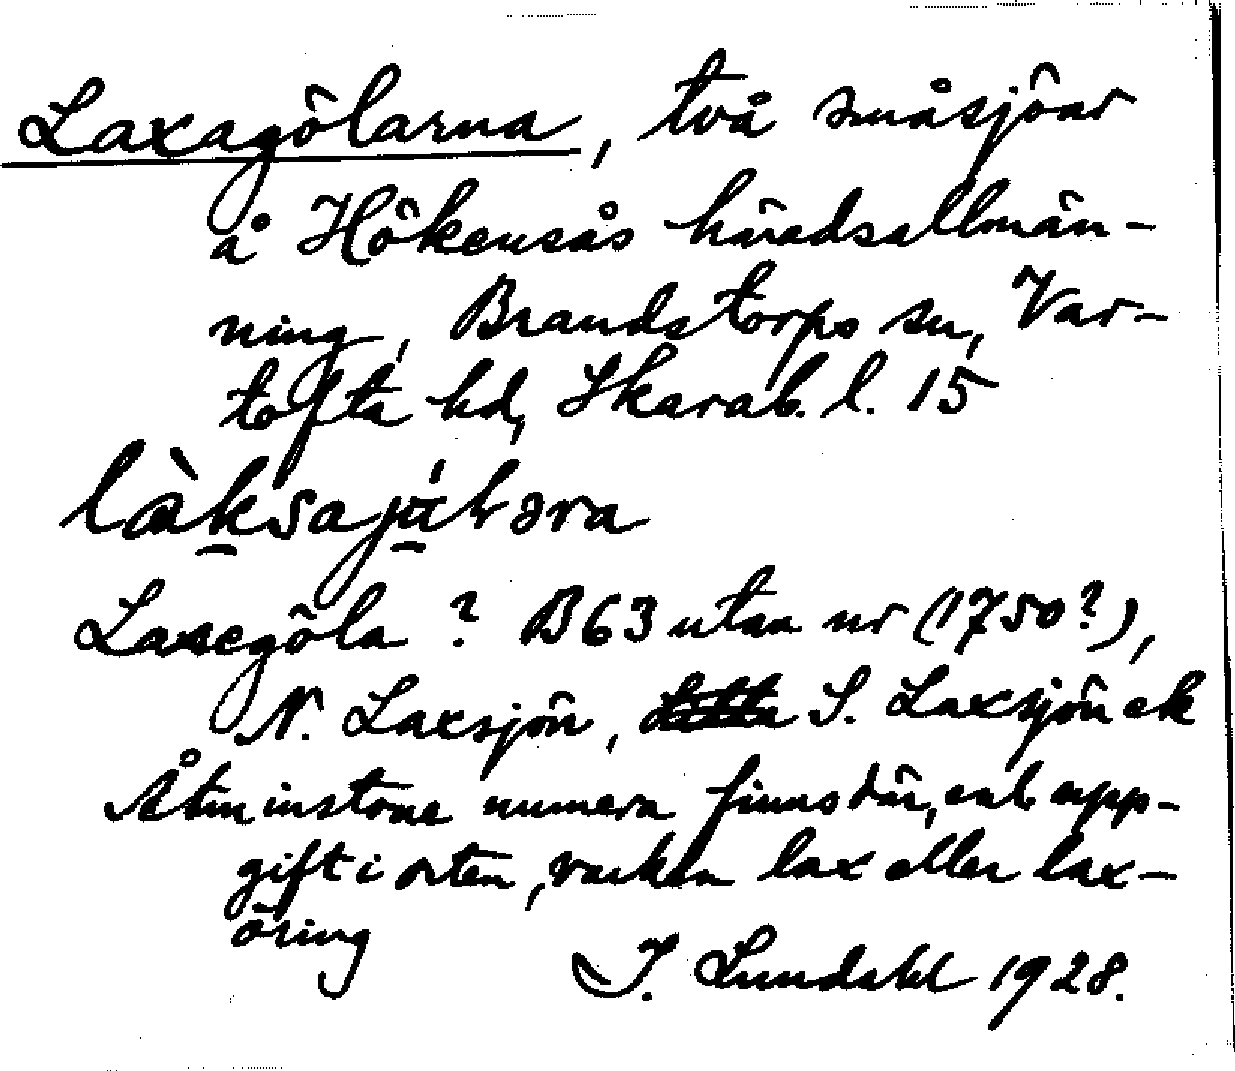 Laxagölarna, två småsjöar
å Hökensås häradsallmän-
ning, Brandstorps sn, Var-
tofta hd, Skarab. l. 15
Laxegöla ? B63 utan nr (1750?),
N. Laxsjön, S. Laxsjön ek
Åtminstone numera finns där, enl. upp-
gift i orten, varken lax eller lax-
öring
I. Lundahl 1928.